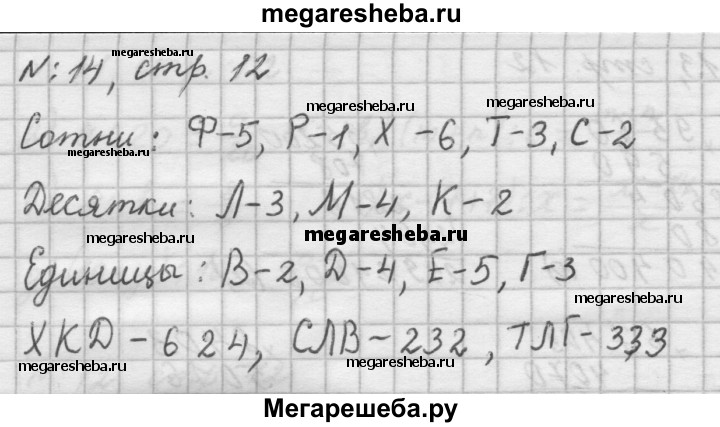 megaresheba.ru
№: 14, стр. 12
megaresheba.ru
megaresheba.ru
megaresheba.ru
Сотни: Ф-5, Р-1, Х-6, Т-3, С-2
megaresheba.ru
megaresheba.ru
Десятки: Л-3, М-4, К-2
megaresheba.ru
megaresheba.ru
Единицы: В-2, D-4, Е-5, Г-3
megaresheba.ru
ХКD-624, СЛВ-232, ТЛГ-333
megaresheba.ru
megaresheba.ru
Мегарешеба.ру